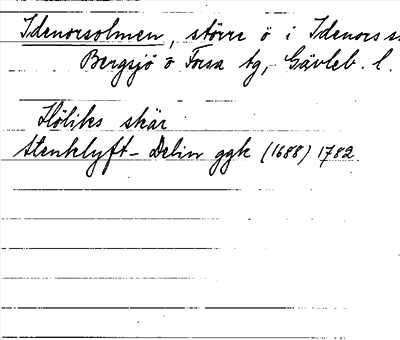 Idenorsolmen, större ö i Idenors s
Bergsjö o Forsa tg, Gävleb. l.
Höliks skär
Stenklyft- Delin ggk (1688) 1782